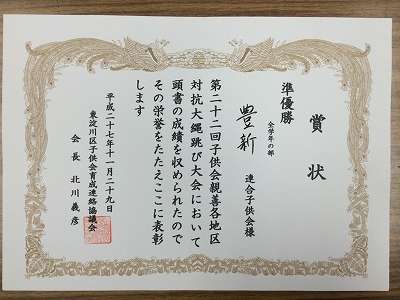 賞状
準優勝
全学年の部
豊新 連合子供会様
第二十二回子供会親善各地区
対抗大縄跳び大会において
頭書の成績を収められたので
その栄誉をたたえここに表彰
します
平成二十七年十一月二十九日
東淀川区子供会育成連絡協議会
会長 北川義彦